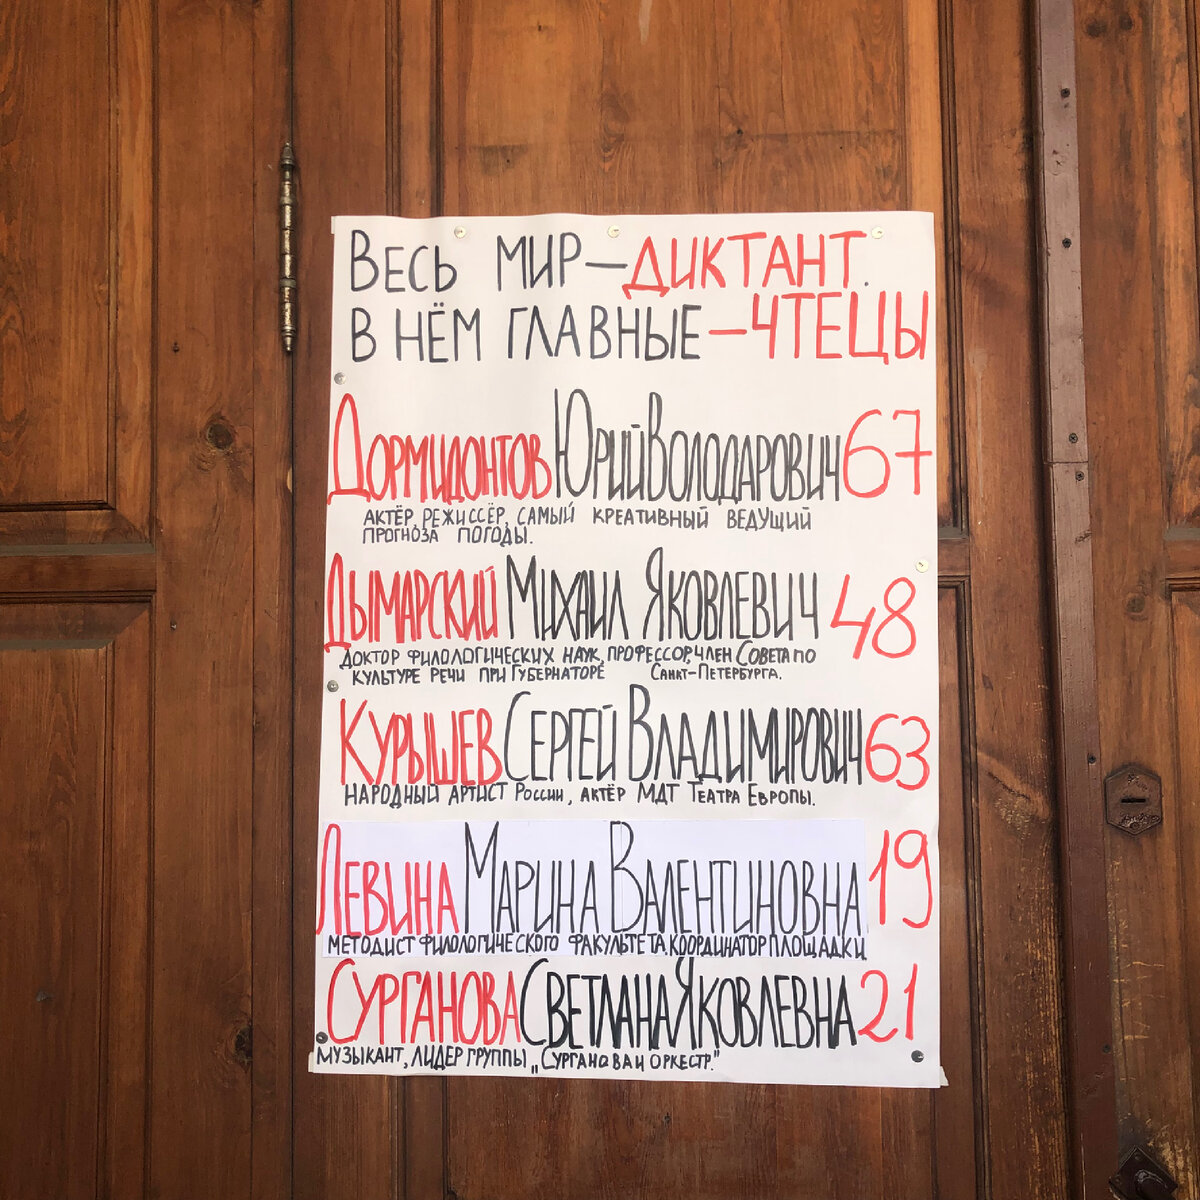 Весь мир – диктант.
в нём главные – чтецы
Дормидонтов Юрий Володарович 67
актёр, режиссёр, самый креативный ведущий
прогноза погоды.
Дымарский Михаил Яковлевич 48
доктор филологических наук, профессор, член Совета по
культуре речи при Губернаторе Санкт-Петербурга.
Курышев Сергей Владимирович 63
народный артист России, актёр МДТ Театра Европы.
Левина Марина Валентиновна 19
методист филологического факультета. координатор площадки
Сурганова Светлана Яковлевна 21
музыкант, лидер группы „Сурганова и оркестр."